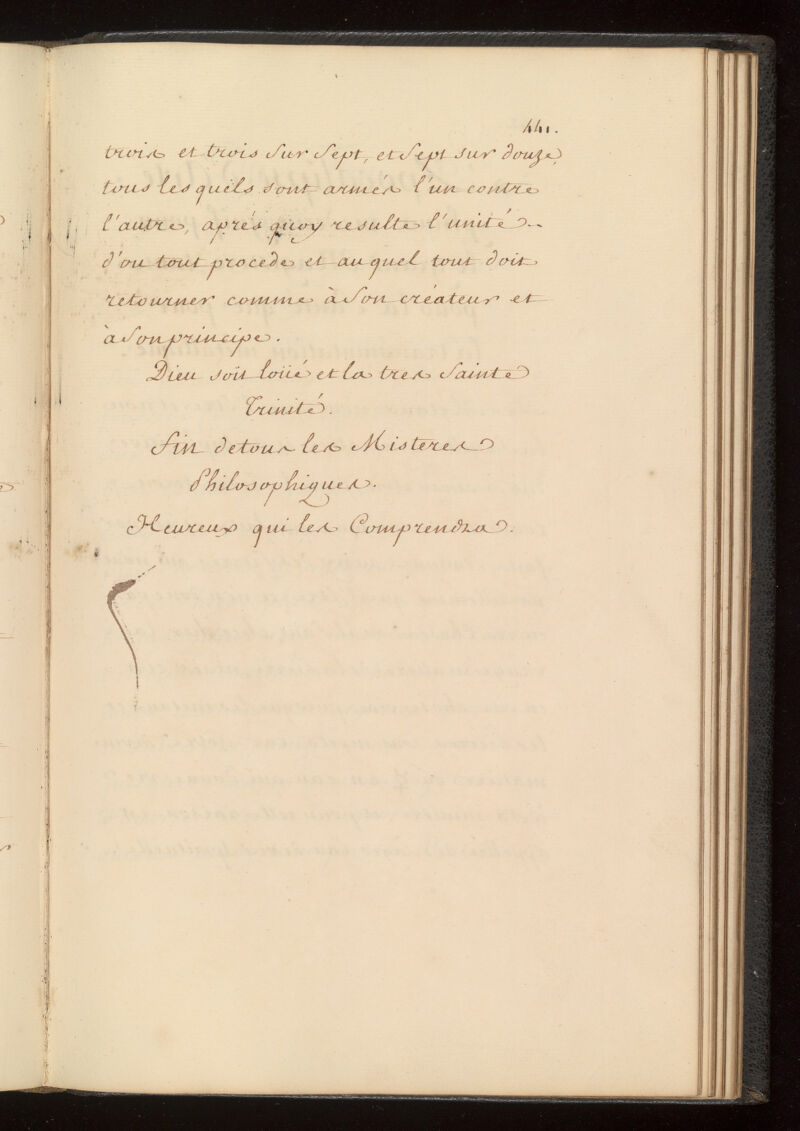 441.
trois et trois sur sept, et sept sur douze,
tous les quels sont armés l'un contre
l'autre, aprés quoy resulte l'unité
d'ou tout procede et au quel tout doit
retourner comme à son créateur et
à son principe.
Dieu soit loüé et la tres sainte
Trinité.
Fin de tous les Misteres
Philosophiques.
Heureux qui les Comprendra.